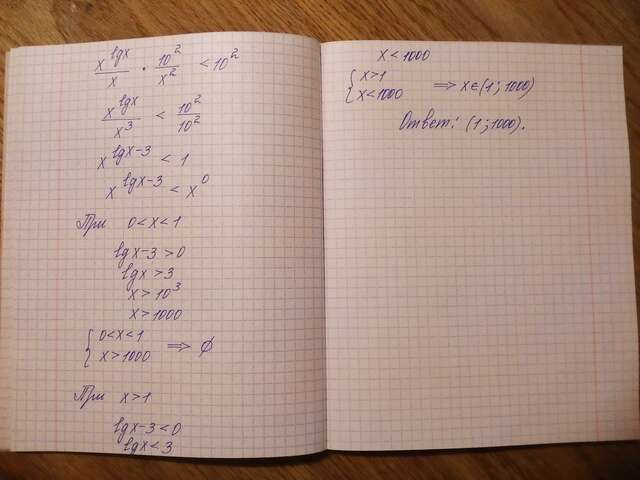 x^lgx / x · 10² / x² < 10²
x^lgx / x³ < 10² / 10²
x^lgx-3 < 1
x^lgx-3 < x⁰
При 0<x<1
lgx-3>0
lgx>3
x>10³
x>1000
{ 0<x<1
x>1000 ⟹ ∅
При x>1
lgx-3<0
lgx<3
x<1000
{ x>1
x<1000 ⟹ x∈(1;1000)
Ответ: (1;1000).